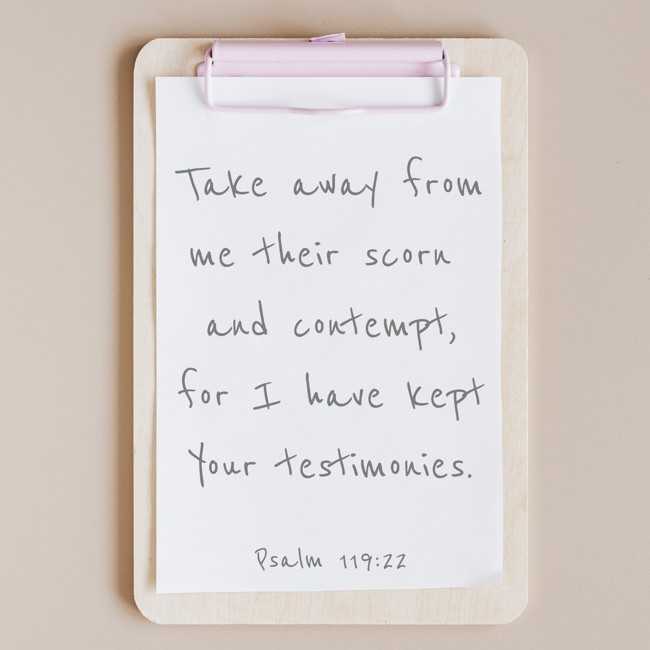 Take away from
me their scorn
and contempt,
for I have kept
Your testimonies.
Psalm 119:22